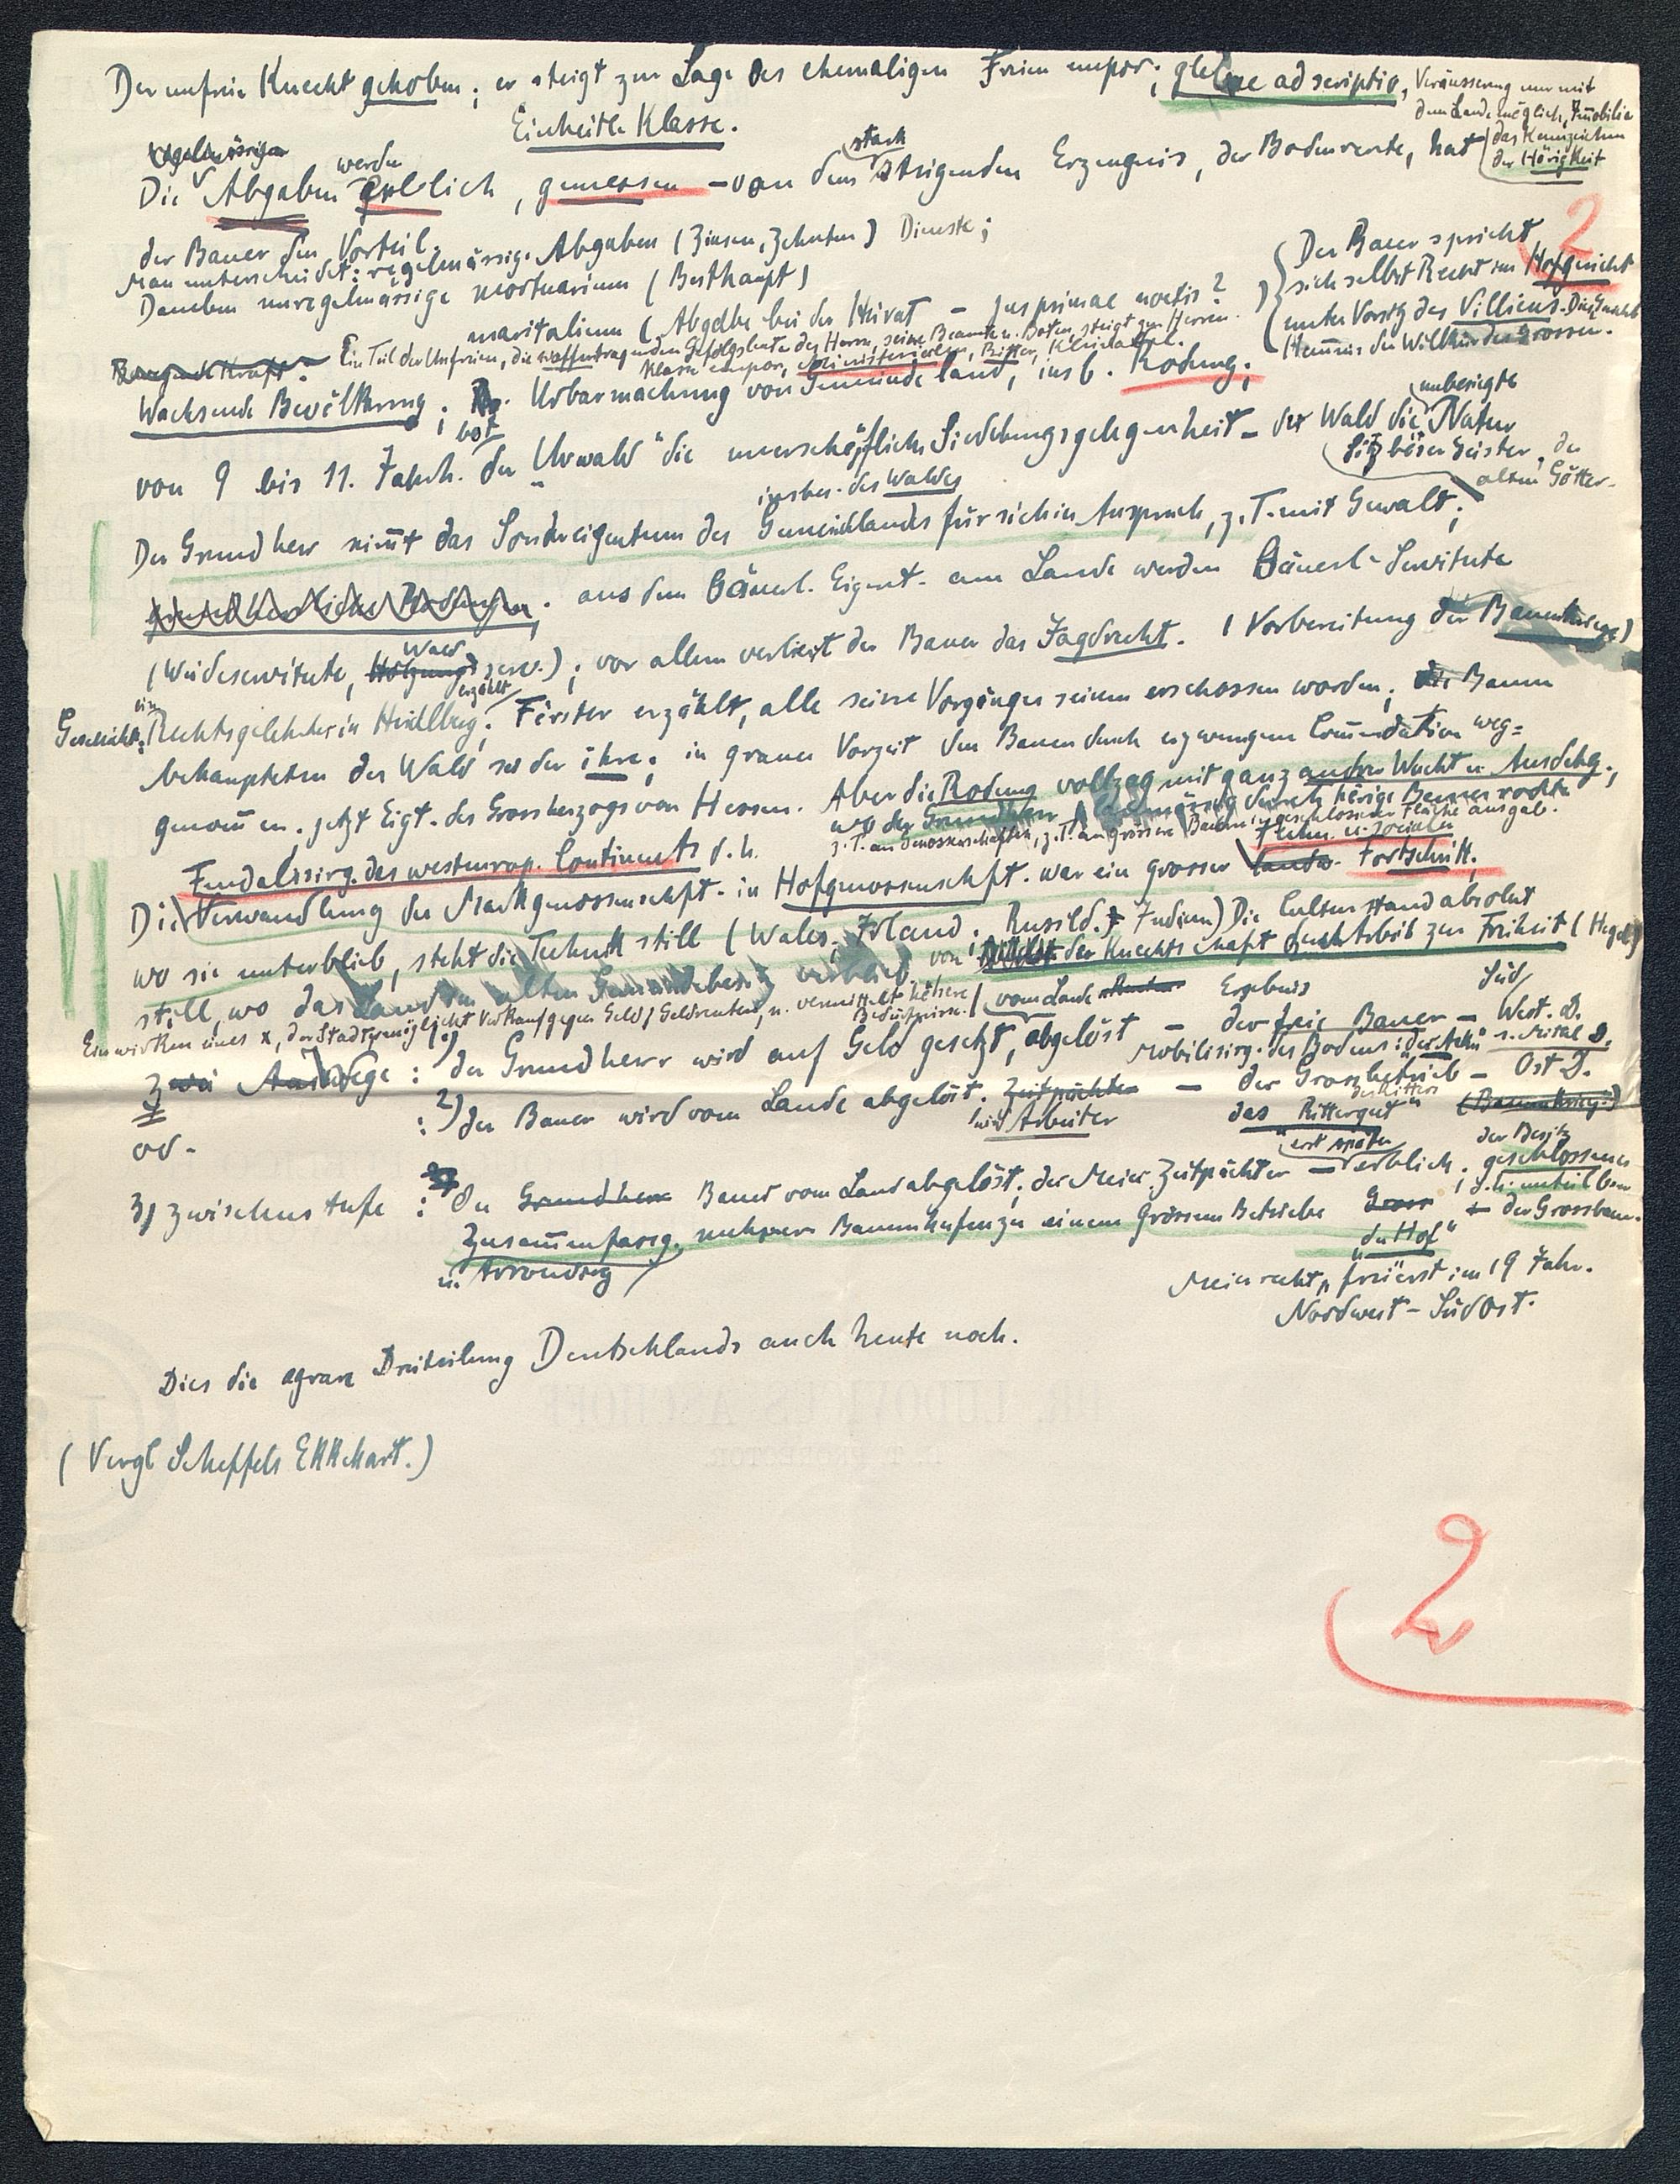 Der unfreie Knecht gehoben; er steigt zur Lage des ehemaligen Freien empor; glebae adscriptio, Veräusserung nur mit
dem Lande möglich, Immobilia
Einheitl. Klasse.
das Kennzeichen
der Hörigkeit
regelmässigen werden stark
Die Abgaben erblich, gemessen – von dem steigenden Erzeugnis, der Bodenrente, hat
der Bauer den Vorteil.
2
Man unterscheidet: regelmässige Abgaben (Zinsen, Zehnten) Dienste;
Daneben unregelmässige mortuarium (Besthaupt)
maritalium (Abgabe bei der Heirat – jus primae noctis?
Der Bauer spricht
sich selbst Recht im Hofgericht
unter Vorsitz des Villicus. Dies
Hemmnis der Willkür des Grossen.
Ein Teil der Unfreien, die waffentragenden Gefolgsleute des Herrn, seine Beamten, Boten, steigt zur Herren-
klasse empor, Ministerialen, Ritter, Kleinadel.
Wachsende Bevölkerung; Urbarmachung von Gemeindeland, insb. Rodung;
bot unbesiegte
von 9 bis 11. Jahrh. der „Urwald" die unerschöpfliche Siedelungsgelegenheit – der Wald die Natur
Sitz böser Geister, der
alten Götter.
insbes. des Waldes
Der Grundherr nimmt das Sondereigentum des Gemeindelandes für sich in Anspruch, z. T. mit Gewalt;
aus dem bäuerl. Eigent. am Lande werden bäuerl. Servitute
Wald
(Weideservitute, Holzungsserv.); vor allem verliert der Bauer das Jagdrecht. (Vorbereitung der Bauernkriege)
ein erzählt
Geschichte: Rechtsgelehrter in Heidelberg; Förster erzählt, alle seine Vorgänger seien erschossen worden; die Bauern
behaupteten der Wald sei der ihre; in grauer Vorzeit den Bauern durch erzwungene Commendation weg=
genommen. jetzt Eigt. des Grossherzogs von Hessen. Aber die Rodung vollzog mit ganz andrer Wucht u. Ausdehg.,
wo der Grundherr durch hörige Bauern rodete
z. T. an Genossenschaften, z. T. an grössere Bauern in geschlossener Fläche ausgab.
Feudalisirg. des westeurop. Continents d. h. techn. u. socialer
Die Verwandlung der Markgenossenschft. in Hofgenossenschft. war ein grosser landw. Fortschritt.
wo sie unterblieb, steht die Technik still (Wales, Irland, Russld. Indien) Die Cultur stand absolut
still, wo das Land im alten Gemeindebesitz verblieb von der Knechtschaft durch Arbeit zur Freiheit (Hegel)
Einwirken eines x, der Stadt, ermöglicht Verkauf gegen Geld, Geldrenten, u. vermittelt höhere
Bedürfnisse. vom Lande Ergebnis Süd
Zwei Auswege: 1) der Grundherr wird auf Geld gesetzt, abgelöst – der freie Bauer – West. D.
Mobilisirg. des Bodens: der u. Mittel D.
od. : 2) der Bauer wird vom Lande abgelöst. Zeitpächter – der Grossbetrieb – Ost D.
wird Arbeiter das „Rittergut" des Ritters (Bauernkrieg!)
erst später der Besitz
3) Zwischenstufe: Der Grundherr Bauer vom Land abgelöst; der Meier, Zeitpächter – erblich. geschlossenes
d. h. unteilbar
Zusammenfassg. mehrerer Bauernhufen zu einem grösseren Betriebe Gross der Grossbauer.
u. Arrondirg „der Hof"
Meierrecht, frei erst im 19 Jahr.
Nordwest – Südost.
Dies die agrare Dreiteilung Deutschlands auch heute noch.
(Vergl Scheffels Ekkehart.)
2